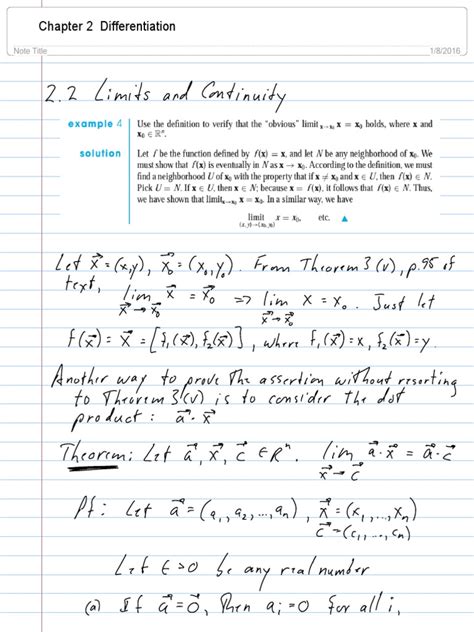 Chapter 2 Differentiation
Note Title
1/8/2016
2.2 Limits and Continuity
example 4 Use the definition to verify that the "obvious" limit x→x₀ x = x₀ holds, where x and
x₀ ∈ ℝⁿ.
solution Let f be the function defined by f(x) = x, and let N be any neighborhood of x₀. We
must show that f(x) is eventually in N as x → x₀. According to the definition, we must
find a neighborhood U of x₀ with the property that if x ≠ x₀ and x ∈ U, then f(x) ∈ N.
Pick U = N. If x ∈ U, then x ∈ N; because x = f(x), it follows that f(x) ∈ N. Thus,
we have shown that limit x→x₀ x = x₀. In a similar way, we have
limit x = x₀, etc. ▲
(x, y)→(x₀, y₀)
Let x⃗ = (x,y), x⃗₀ = (x₀, y₀). From Theorem 3(v), p.95 of
text, lim x⃗ = x⃗₀ => lim x = x₀. Just let
x⃗→x⃗₀ x⃗→x⃗₀
f(x⃗) = x⃗ = [f₁(x⃗), f₂(x⃗)], where f₁(x⃗)=x, f₂(x⃗)=y.
Another way to prove the assertion without resorting
to Theorem 3(v) is to consider the dot
product: a⃗ · x⃗
Theorem: Let a⃗, x⃗, c⃗ ∈ Rⁿ. lim a⃗ · x⃗ = a⃗ · c⃗
x⃗→c⃗
Pf: Let a⃗ = (a₁, a₂, ..., aₙ), x⃗ = (x₁, ..., xₙ)
c⃗ = (c₁, ..., cₙ)
Let ε > 0 be any real number
(a) If a⃗ = 0⃗, Then aᵢ = 0 for all i,